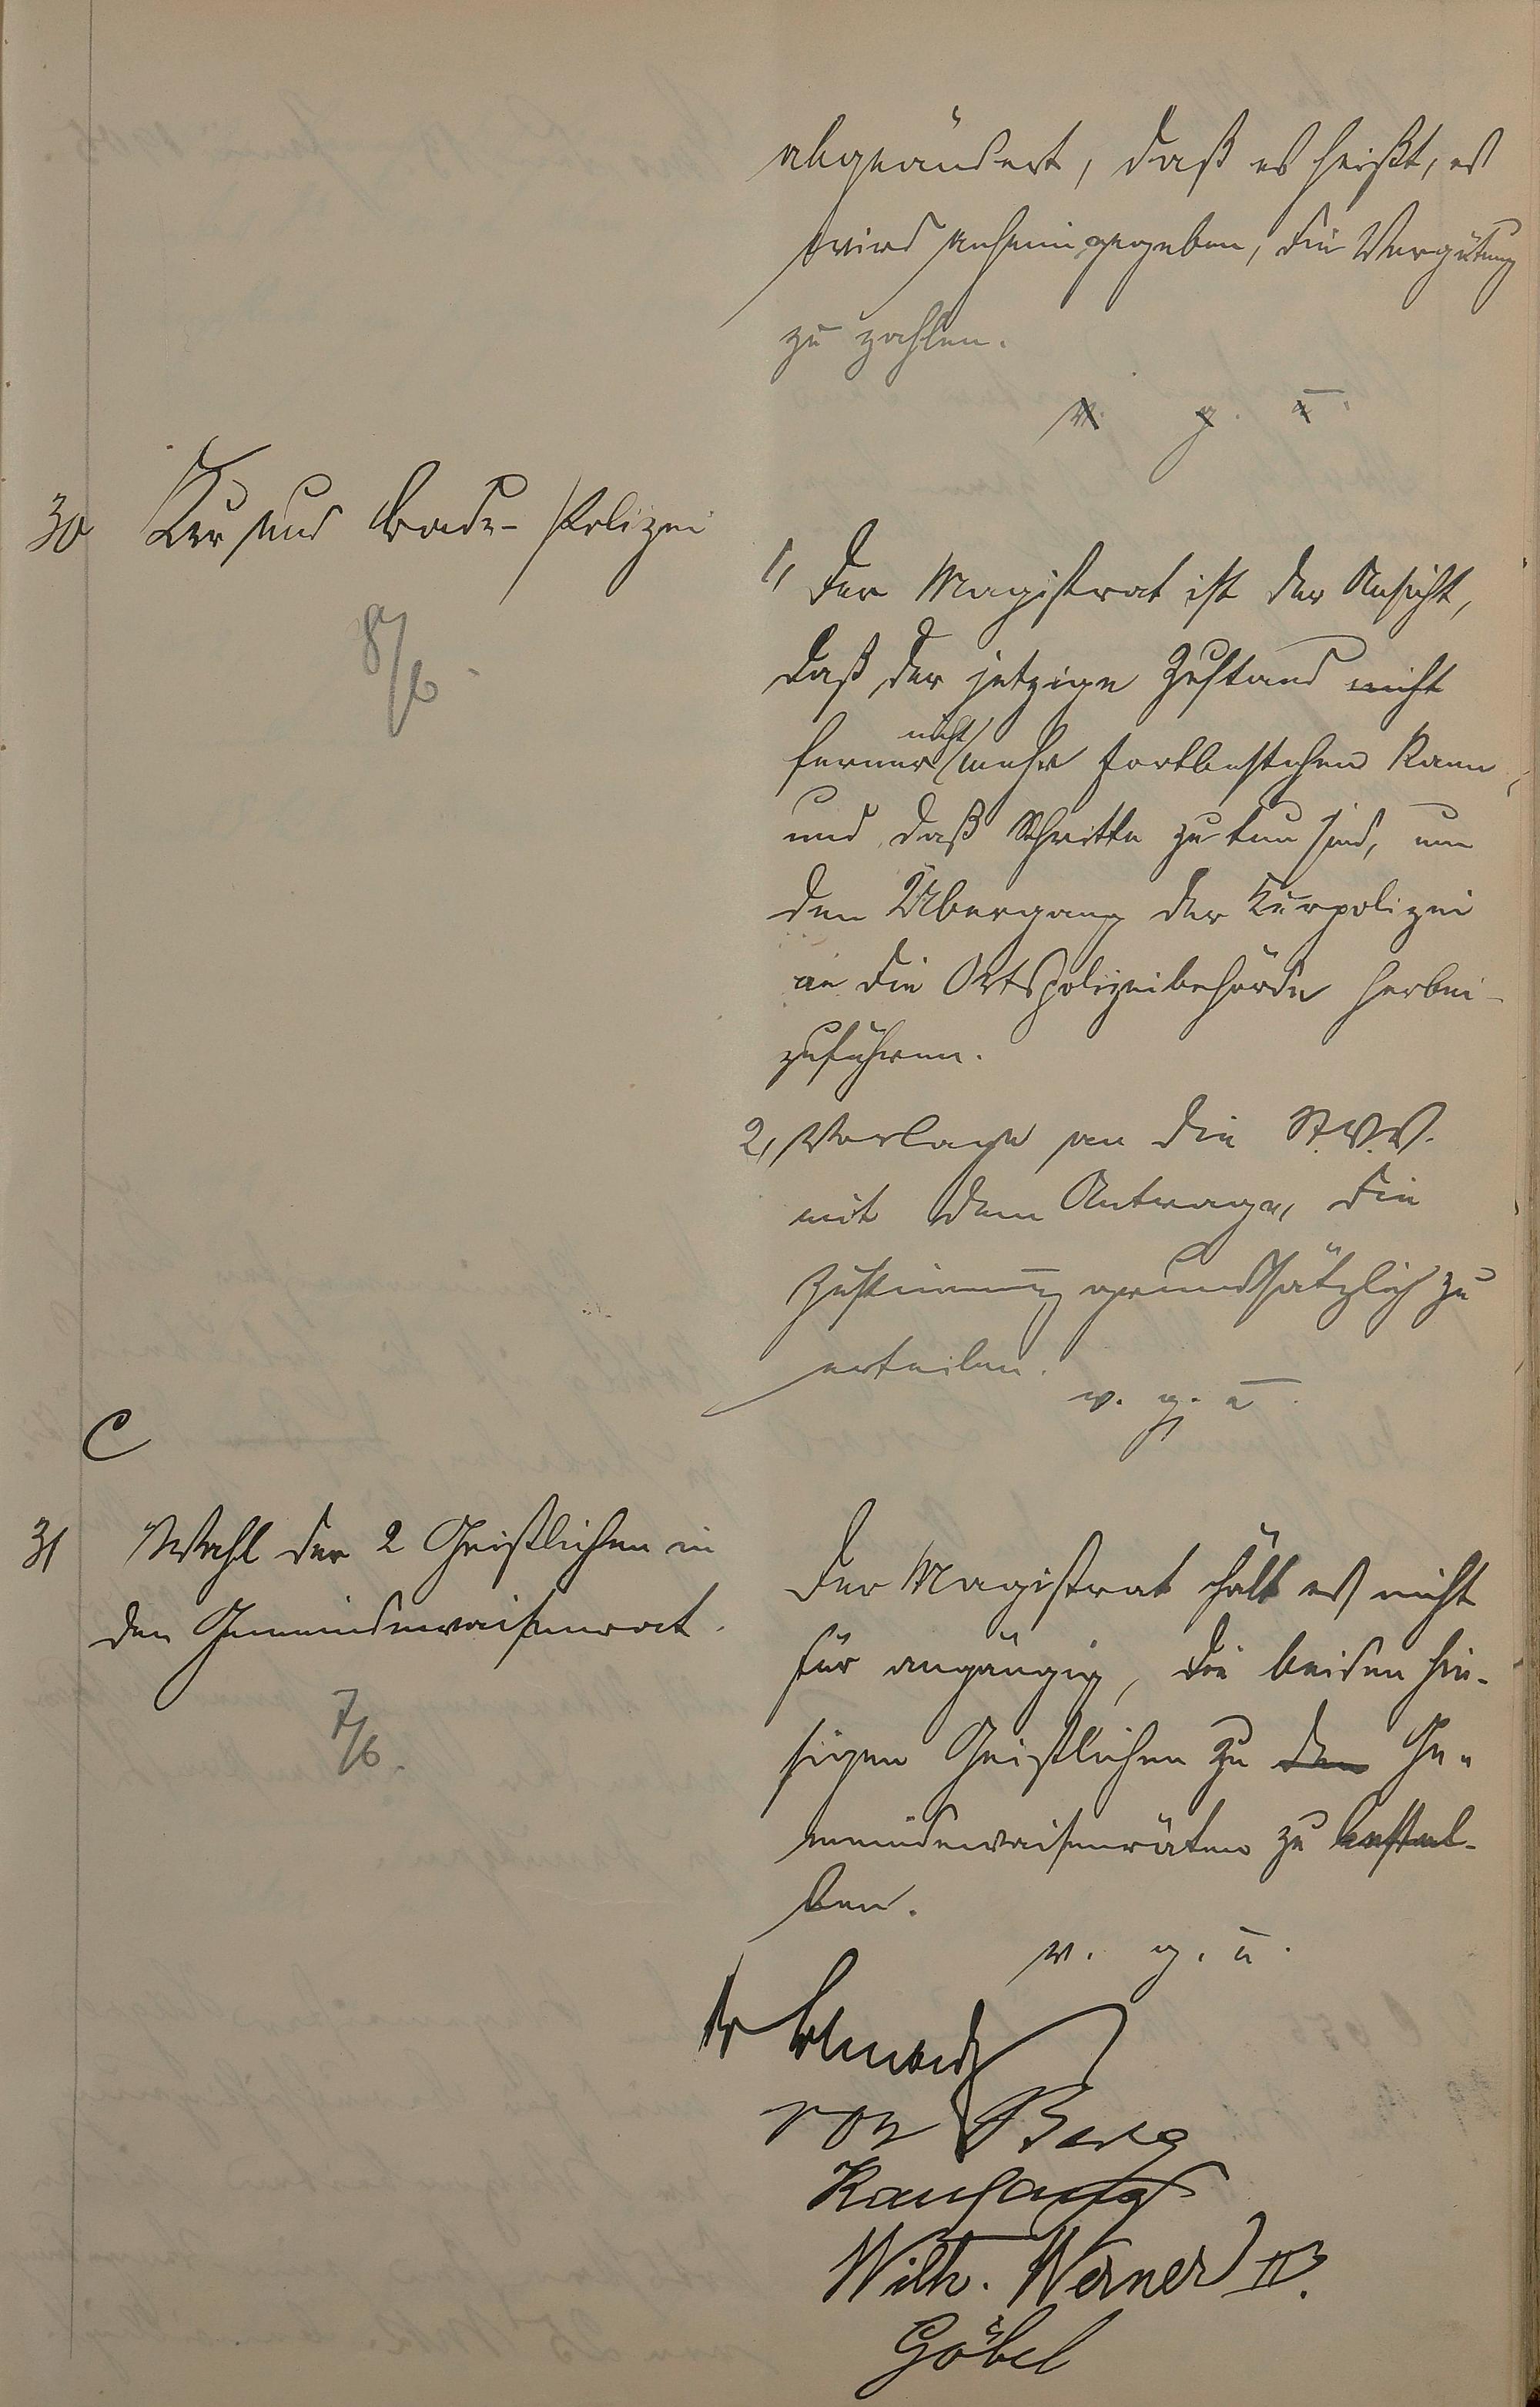 abgeändert, daß es heißt, es
wird anheimgegeben, die Vergütung
zu zahlen.
v. g. u.
30 Kur und Bade-Polizei
8/6.
1, Der Magistrat ist der Ansicht,
daß der jetzige Zustand nicht
ferner nicht mehr fortbestehen kann,
und daß Schritte zu tun sind, um
den Übergang der Kurpolizei
an die Ortspolizeibehörde herbei-
zuführen.
2, Vorlage an die St.V.V.
mit dem Antrage, die
Zustimmung grundsätzlich zu
erteilen.
v. g. u.
C
31 Wahl der 2 Geistlichen in
den Gemeindewaisenrat.
7/6.
Der Magistrat hält es nicht
für angängig, die beiden hie-
sigen Geistlichen zu den Ge-
meindewaisenräten zu bestel-
len.
v. g. u.
von Berg
Wilh. Werner III.
Göbel